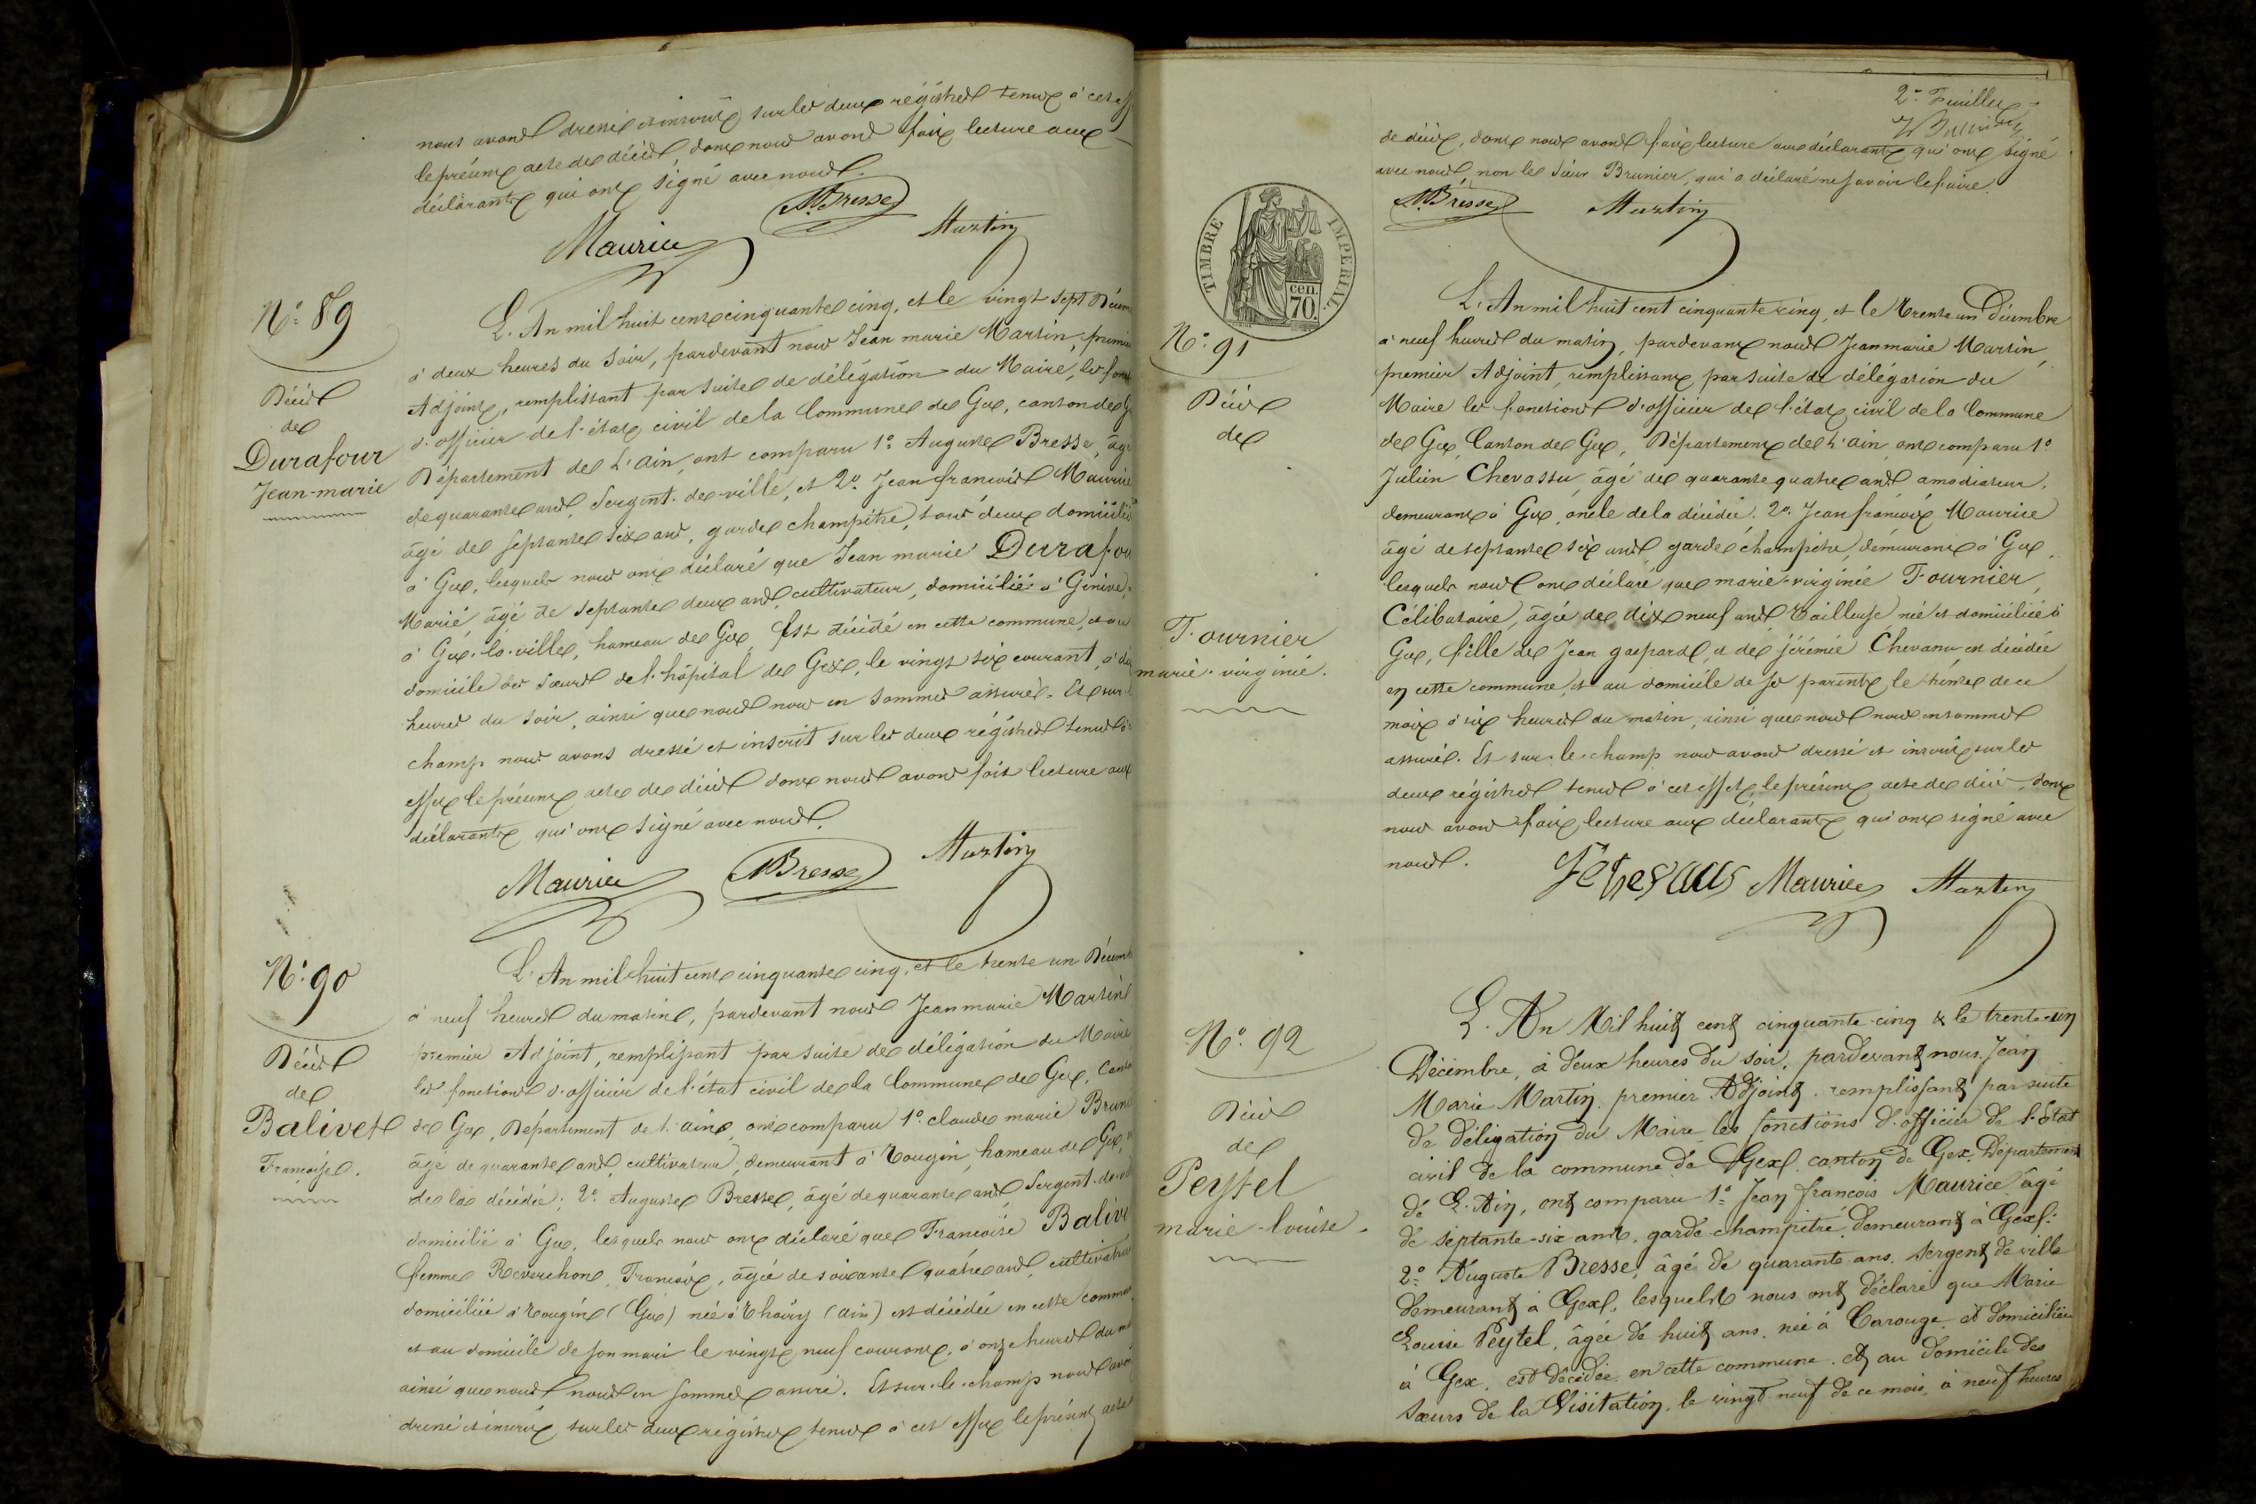 nous avons dressé et inscrit sur les deux régistres tenus à cet eff
le présent acte de décès, dont nous avons fait lecture aux
déclarants qui ont signé avec nous.
Maurice ABresse Martin
N° 89
Décès
de
Durafour
Jean-marie
L'An mil huit cent cinquante cinq, et le vingt sept Décem
à deux heures du soir, pardevant nous Jean marie Martin, premier
Adjoint, remplissant par suite de délégation du Maire, les fonc
d'officier de l'état civil de la Commune de Gex, canton de G
Département de L'ain, ont comparu 1° Auguste Bresse, âgé
de quarante ans, Sergent-de-ville, et 2° Jean françois Maurice
âgé de septante six ans, garde champêtre, tous deux domiciliés
à Gex, lesquels nous ont déclaré que Jean marie Durafou
Marié, âgé de septante deux ans, cultivateur, domicilié à Genève,
à Gex-la-ville, hameau de Gex, est décédé en cette commune, et au
domicile des sœurs de l'hôpital de Gex, le vingt six courant, à d
heures du soir, ainsi que nous nous en sommes assurés. Et sur-l
champ nous avons dressé et inscrit sur les deux régistres tenus à
effet le présent acte de décès dont nous avons fait lecture aux
déclarants qui ont signé avec nous.
Maurice ABresse Martin
N° 90
Décès
de
Balivet
Françoise.
L'An mil huit cent cinquante cinq, et le trente un Décemb
à neuf heures du matin, pardevant nous Jean marie Martin
premier Adjoint, remplissant par suite de délégation du Maire
les fonctions d'officier de l'état civil de la Commune de Gex, Canto
de Gex, Département de l'ain, ont comparu 1° claude marie Bruni
âgé de quarante ans, cultivateur, demeurant à Tougin, hameau de Gex,
de la décédée; 2° Auguste Bresse, âgé de quarante ans, Sergent-de-vi
domicilié à Gex, lesquels nous ont déclaré que Françoise Balive
femme Reverchon, François, âgée de soixante quatre ans, cultivatrice
domiciliée à Tougin (Gex) née à Thoiry (ain) est décédée en cette commun
et au domicile de son mari le vingt neuf courant, à onze heures du m
ainsi que nous nous en sommes assuré. Et sur-le-champ nous avon
dressé et inscrit sur les deux régistres tenus à cet effet le présent acte
2° Feuillet
de décès, dont nous avons fait lecture aux déclarants qui ont signé
avec nous, non le Sieur Brunier, qui a déclaré ne savoir le faire.
ABresse Martin
TIMBRE IMPERIAL.
cen. 70.
N° 91
Décès
de
Fournier
marie-virginie.
L'An mil huit cent cinquante cinq, et le trente un Décembre
à neuf heures du matin, pardevant nous Jean marie Martin,
premier Adjoint, remplissant par suite de délégation du
Maire les fonctions d'officier de l'état civil de la Commune
de Gex, Canton de Gex, Département de L'ain, ont comparu 1°
Julien Chevassu, âgé de quarante quatre ans amodiateur,
demeurant à Gex, oncle de la décédée. 2° Jean françois Maurice
âgé de septante six ans garde champêtre demeurant à Gex,
lesquels nous ont déclaré que marie-virginie Fournier,
Célibataire, âgée de dix neuf ans, tailleuse née et domiciliée à
Gex, fille de Jean gaspard, et de jérémie Chevassu est décédée
en cette commune, et au domicile de se parents, le trente de ce
mois à six heures du matin, ainsi que nous nous en sommes
assurés. Et sur-le-champ nous avons dressé et inscrit sur les
deux régistres tenus à cet effet, le présent acte de décès, dont
nous avons fait lecture aux déclarants qui ont signé avec
nous.
Maurice Martin
N° 92
Décès
de
Peytel
marie-louise.
L'An Mil huit cent cinquante-cinq & le trente-un
Décembre, à deux heures du soir, pardevant nous Jean
Marie Martin premier Adjoint remplissant par suite
de déligation du Maire les fonctions d'officier de l'état
civil de la commune de Gex, canton de Gex, Département
de L'Ain, ont comparu 1° Jean françois Maurice âgé
de septante-six ans, garde-champêtre, demeurant à Gex:
2° Auguste Bresse, âgé de quarante ans, sergent de ville
demeurant à Gex, lesquels nous ont déclaré que Marie
Louise Peytel, âgée de huit ans, née à Carouge et domiciliée
à Gex, est décédée en cette commune, et au domicile des
sœurs de la Visitation, le vingt-neuf de ce mois, à neuf heures